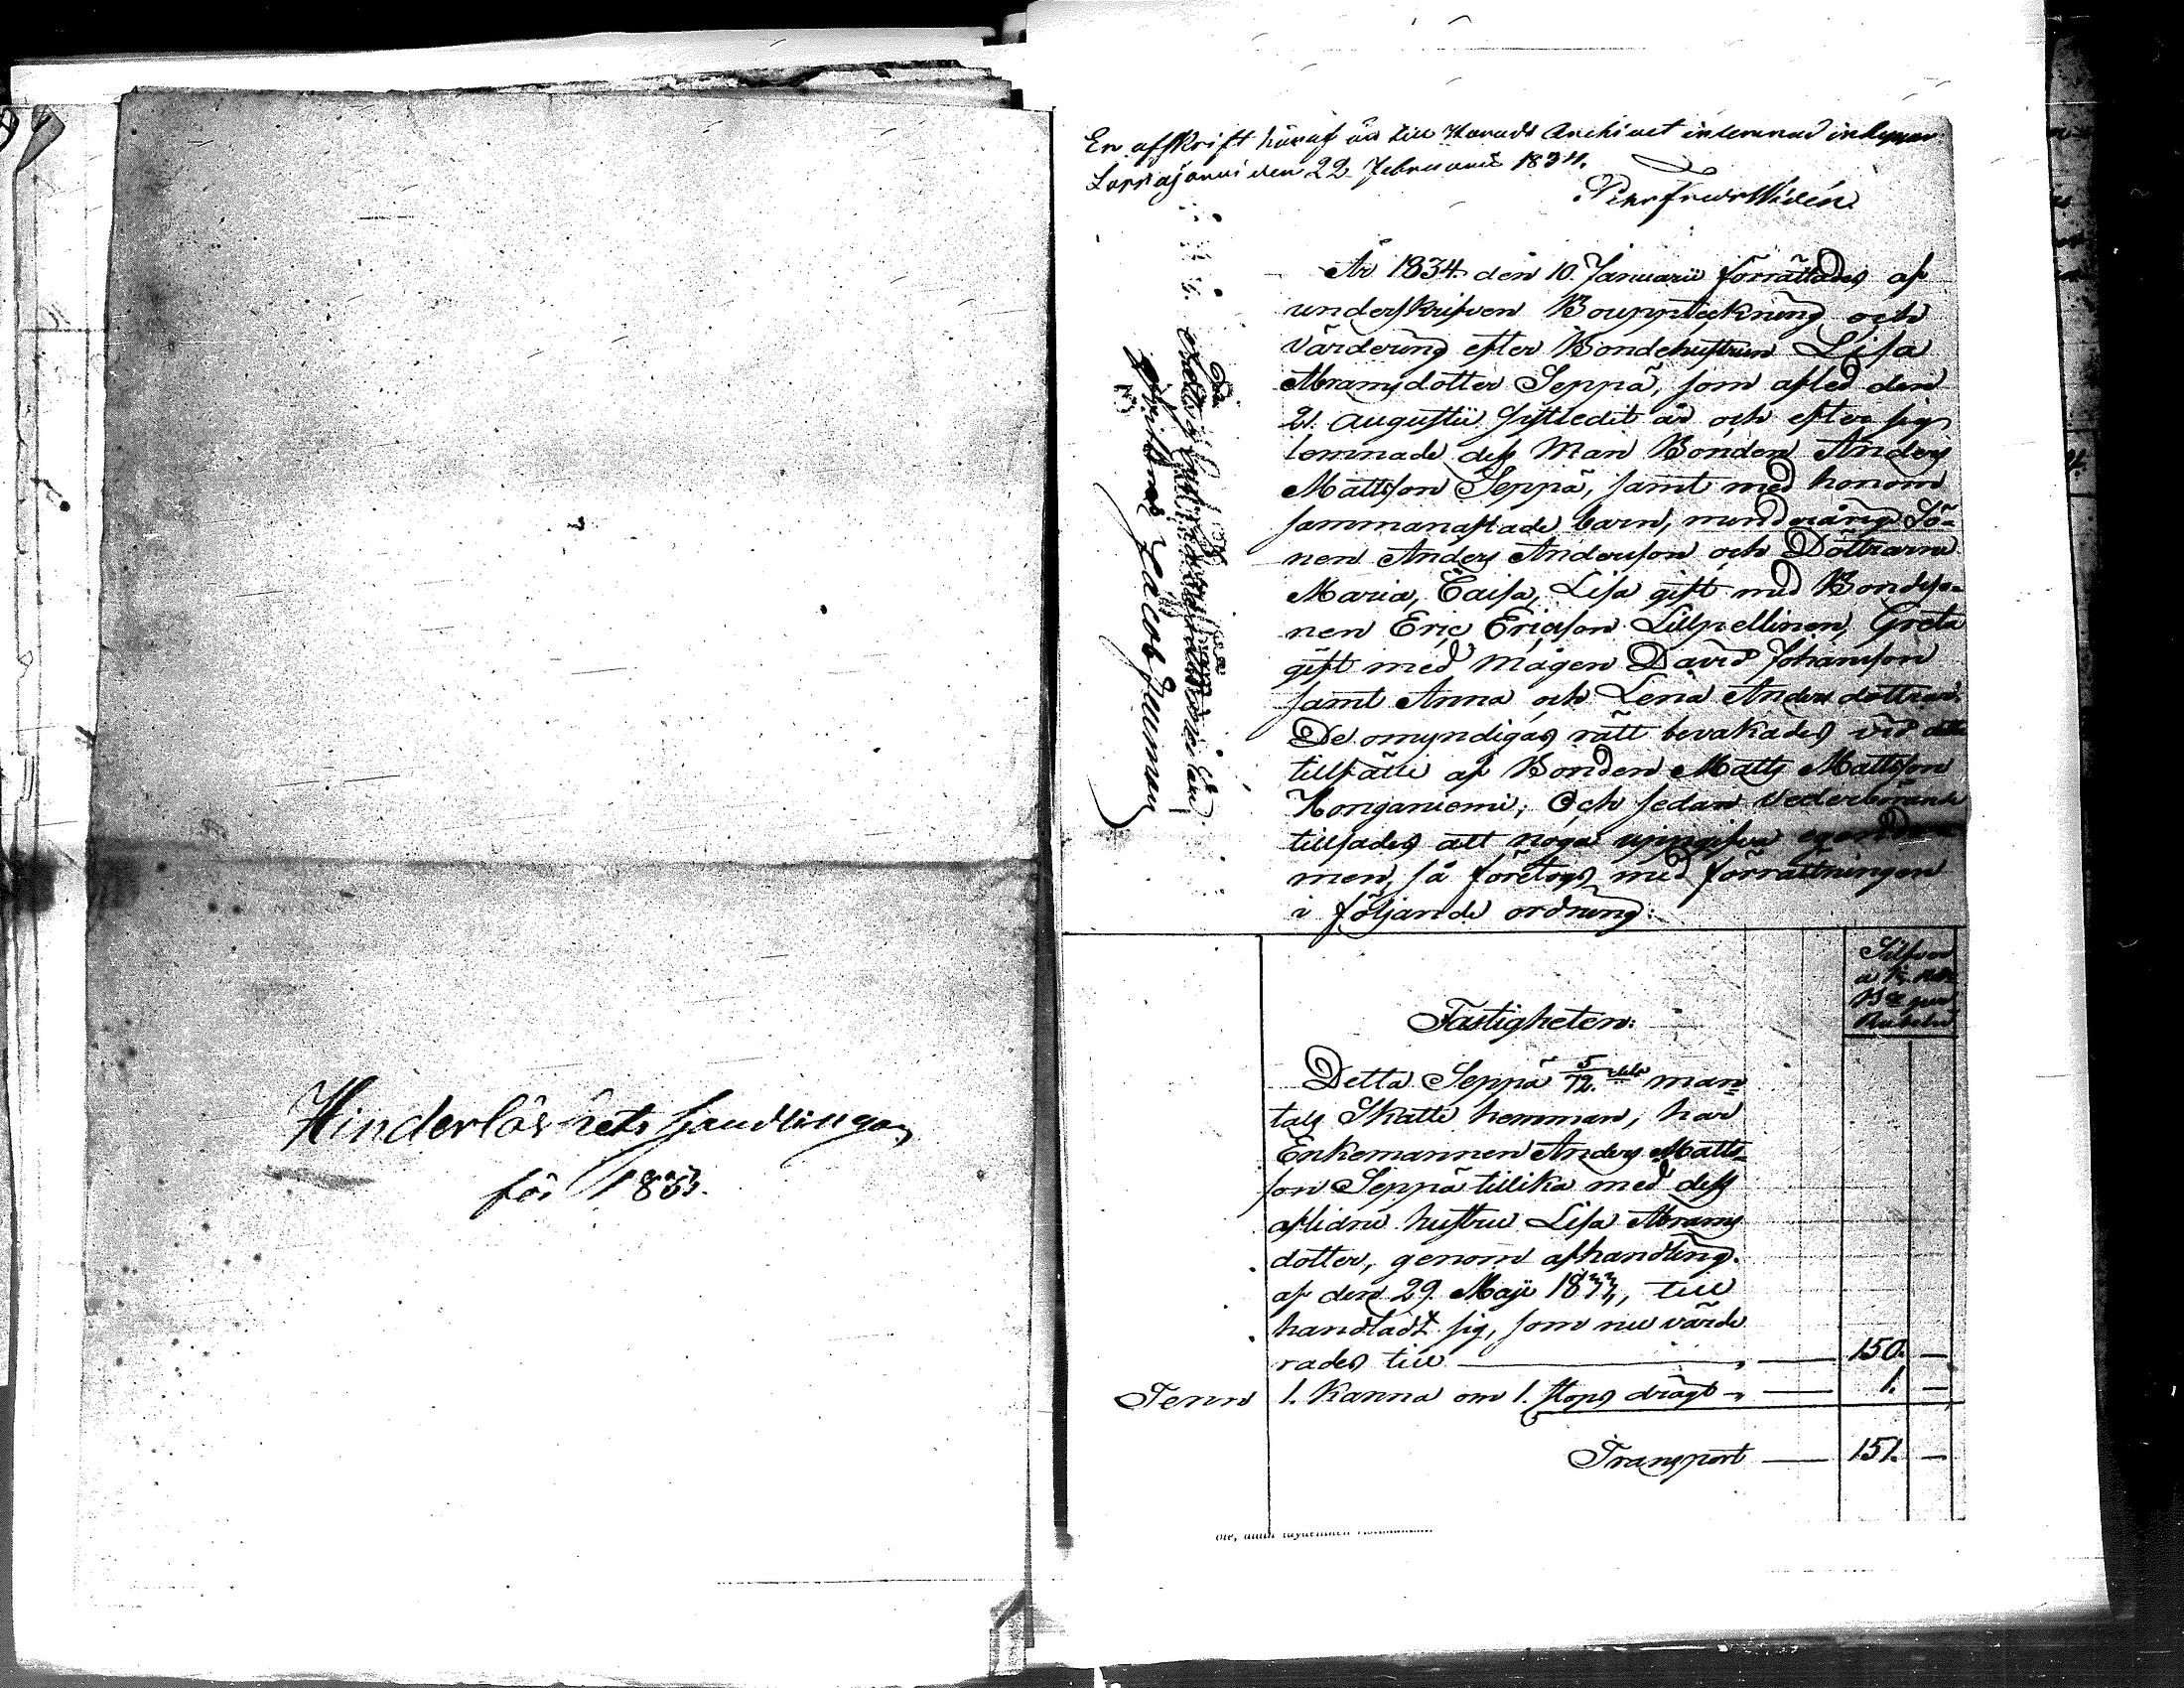 Hinderlöshets handlingar
för 1833.
En afskrift häraf är till Härads Archivet inlemnad
Lappajärvi den 22 Februarii 1834.
År 1834 den 10. Januarii förrättades af
underskrifven Bouppteckning och
värdering efter Bondehustrun Lisa
Abramsdotter Seppä, som afled den
21. Augustii sistledit år och efter sig
lemnade dess Man Bonden Anders
Mattsson Seppä, samt med honom
sammanaflade barn, minderårige Sö-
nen Anders Andersson och Döttrarne
Maria, Caisa, Lisa gift med Bondeso-
nen Eric Ericsson Lillpellinen, Greta
gift med Mågen David Johansson
samt Anna och Lena Andersdöttrar.
De omyndigas rätt bevakades vid detta
tillfälle af Bonden Matts Mattsson
Honganiemi; Och sedan Vederbörande
tillsades att noga uppgifva egendo-
men, så företogs med förrättningen
i följande ordning:
Silfver
Rubel
Fastigheten:
Detta Seppä 5/12 dels man-
tals Skatte hemman, har
Enkemannen Anders Matts-
son Seppä tillika med dess
aflidne hustru Lisa Abrams
dotter, genom afhandling
af den 29. Maji 1833, till
handladt sig, som nu värde
rades till 150. —
Tenn 1. Kanna om 1. stops drägt 1. —
Transport 151. —
Jacob